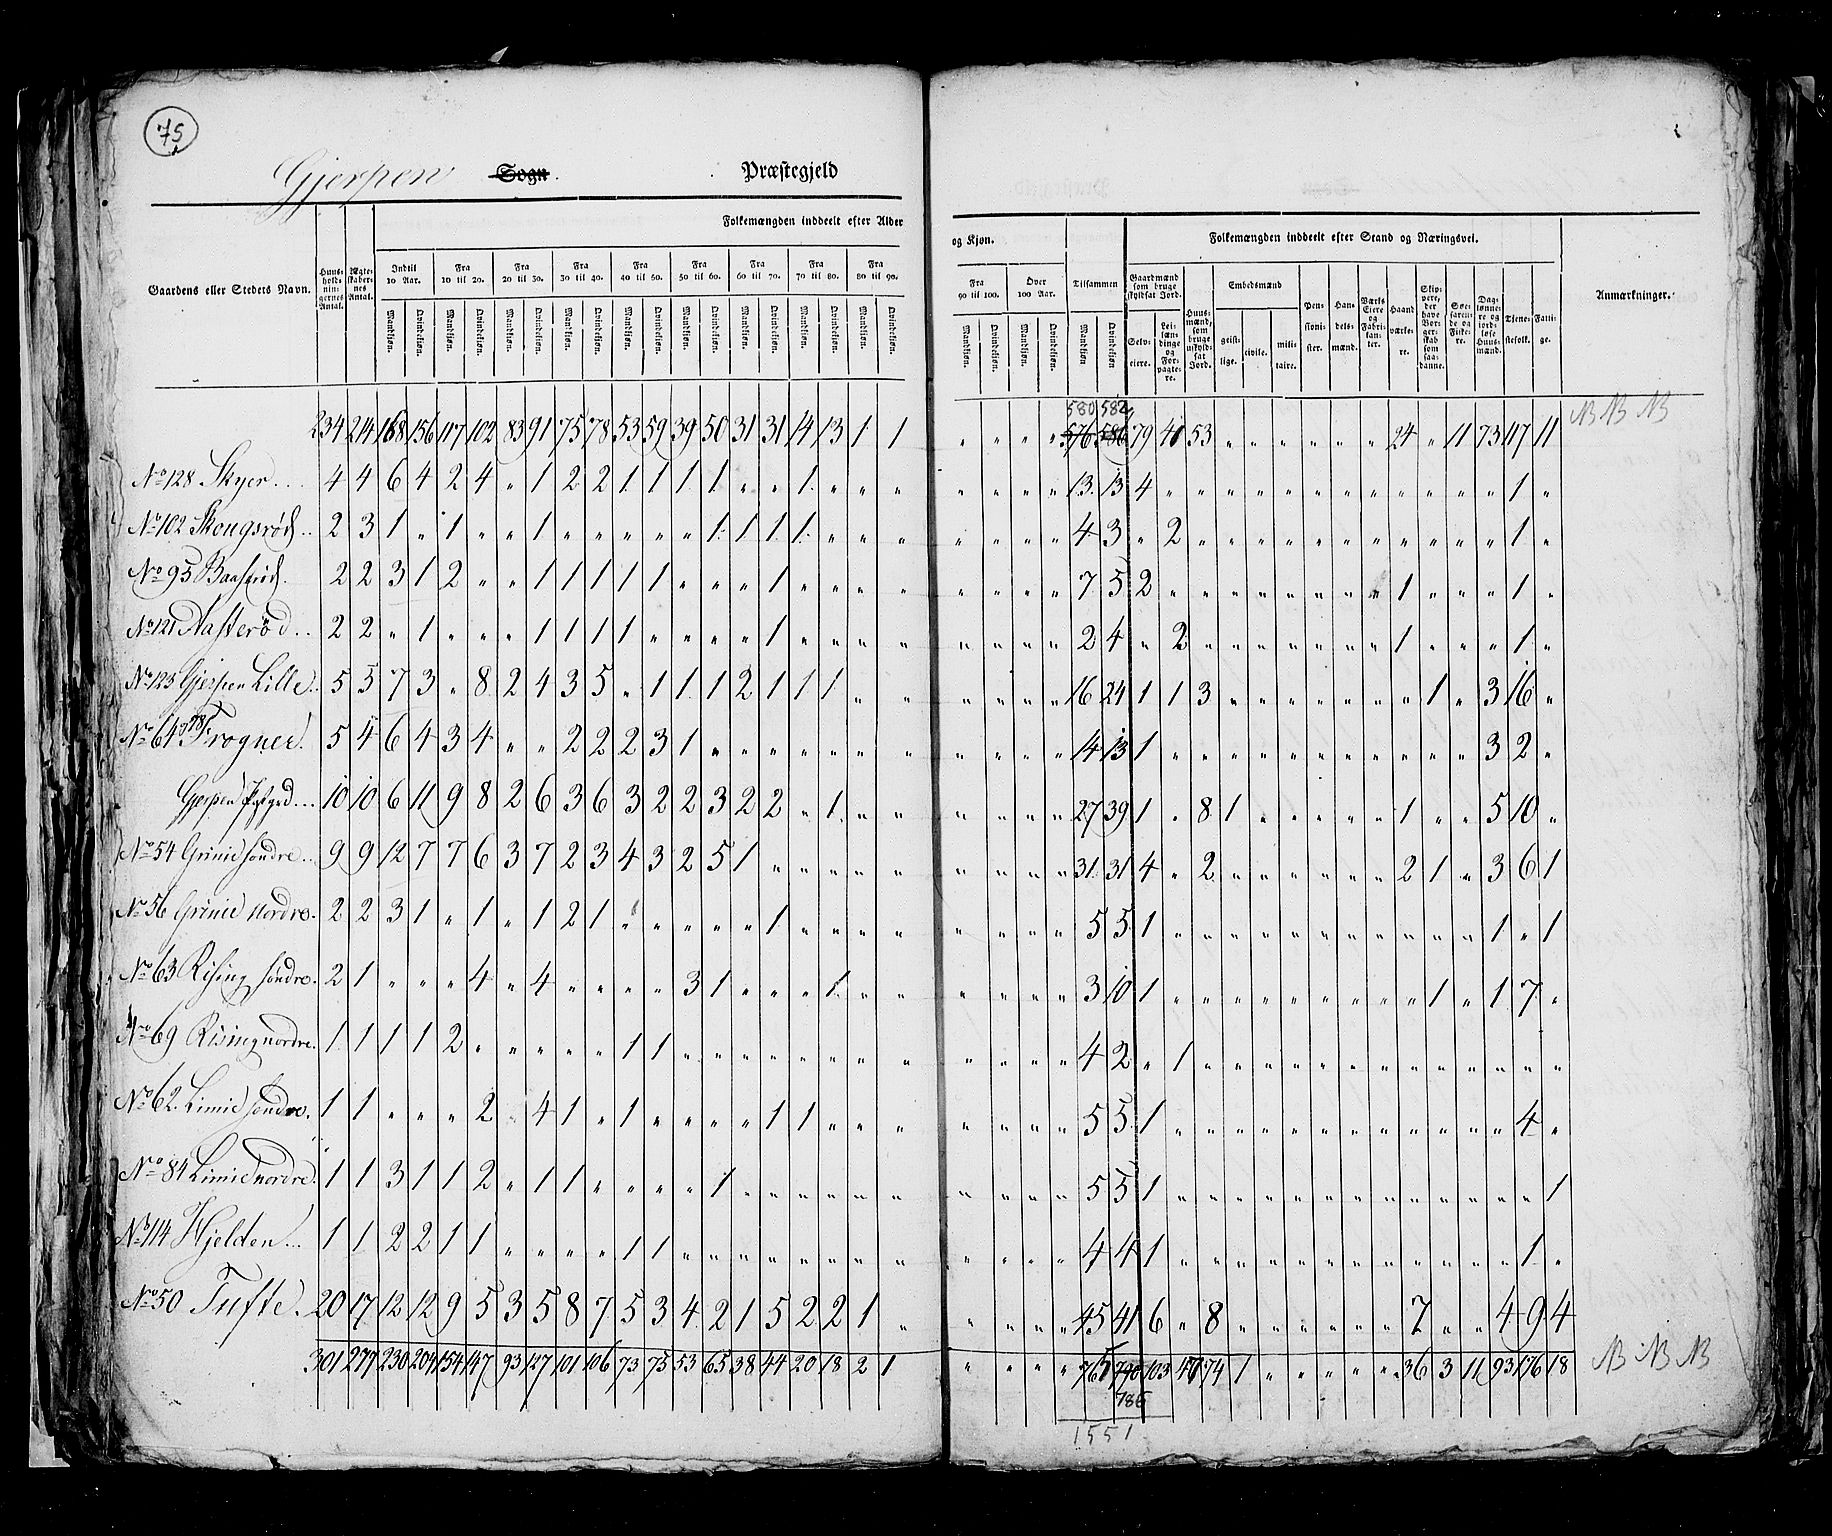 75
Gjerpen Sogn. Præstegjeld
Folkemængden inddeelt efter Alder og Kjøn. Folkemængden inddeelt efter Stand og Næringsvei.
Gaardens eller Stedets Navn. Huusholdningernes Antal. Ægteskabernes Antal. Indtil 10 Aar. Fra 10 til 20. Fra 20 til 30. Fra 30 til 40. Fra 40 til 50. Fra 50 til 60. Fra 60 til 70. Fra 70 til 80. Fra 80 til 90. Fra 90 til 100. Over 100 Aar. Tilsammen Gaardmænd som bruge skyldsat Jord. Huusmænd, som bruge uskyldsat Jord. Embedsmænd Pensionister. Handelsmænd. Værks Eiere og Fabrikanter. Haandværkere. Skippere, der have Borgerskab som saadanne. Søefarende og Fiskere. Dagslønnere og jordløse Huusmænd. Tjenestefolk. Fattige. Anmærkninger.
Mandkjøn. Qvindekjøn. Mandkjøn. Qvindekjøn. Mandkjøn. Qvindekjøn. Mandkjøn. Qvindekjøn. Mandkjøn. Qvindekjøn. Mandkjøn. Qvindekjøn. Mandkjøn. Qvindekjøn. Mandkjøn. Qvindekjøn. Mandkjøn. Qvindekjøn. Mandkjøn. Qvindekjøn. Mandkjøn. Qvindekjøn. Mandkjøn Qvindekjøn Selveiere. Leilændinge og Forpagtere. geistlige. civile. militaire.
580 582
234 214 168 156 117 102 83 91 75 78 53 59 39 50 31 31 14 13 1 1 " " " " 576 586 79 41 53 " " " " " " 24 " 11 73 117 11 NB NB NB
No 128 Skyer... 4 4 6 4 2 4 " 1 2 2 1 1 1 1 " " 1 " " " " " " " 13 13 4 " " " " " " " " " " " " 1 "
No 102 Skougsrød.. 2 3 1 " 1 " " 1 " " " " " 1 1 1 1 " " " " " " " 4 3 " 2 " " " " " " " " " " " 1 "
No 95 Baasrød. 2 2 3 1 2 " " 1 1 1 1 1 " " " 1 " " " " " " " " 7 5 2 " " " " " " " " 1 " " " 1 "
No 121 Aasterød.. 2 2 " 1 " " " 1 1 1 1 " " " " 1 " " " " " " " " 2 4 " 2 " " " " " " " 1 " " " 1 "
No 125 Gjerpen Lille. 5 5 7 3 " 8 2 4 3 5 " 1 1 1 2 1 1 1 " " " " " " 16 24 1 1 3 " " " " " " " 1 " 3 16 "
No 64 Frogner. 5 4 6 4 3 4 " " 2 2 2 3 1 " " " " " " " " " " " 14 13 1 " " " " " " " " " " " 3 2 "
Gjerpen Pstgrd... 10 10 6 11 9 8 2 6 3 6 3 2 2 3 2 2 " 1 " " " " " " 27 39 1 " 8 1 " " " " " 1 " " 5 10 "
No 54 Grinie søndre.. 9 9 12 7 7 6 3 7 2 3 4 3 2 5 1 " " " " " " " " " 31 31 4 " 2 " " " " " " 2 1 " 3 6 1
No 56 Grinie Nordre. 2 2 3 1 " 1 " 1 2 1 " " " " " 1 " " " " " " " " 5 5 1 " " " " " " " " " " " 1 " 1
No 63 Rising søndre. 2 1 " " " 4 " 4 " " " " 3 1 " " " 1 " " " " " " 3 10 1 " " " " " " " " " 1 " 1 7 "
No 69 Rising nordre. 1 1 1 1 2 " " " " " 1 1 " " " " " " " " " " " " 4 2 " 1 " " " " " " " " " " " " "
No 62. Limie søndre. 1 1 " " " 2 " 4 1 " 1 " " " " 1 1 " " " " " " " 5 5 1 " " " " " " " " " " " " 4 "
No 84 Limie nordre. 1 1 3 1 1 2 " 1 1 " " " " 1 " " " " " " " " " " 5 5 1 " " " " " " " " " " " " " 1
No 114 Hjelden... 1 1 2 2 1 1 " " " " 1 1 " " " " " " " " " " " " 4 4 1 " " " " " " " " " " " " 1 "
No 50 Tufte. 20 17 12 12 9 5 3 5 8 7 5 3 4 2 1 5 2 2 1 " " " " " 45 41 6 " 8 " " " " " " 7 " " 4 9 4
301 277 230 204 154 147 93 127 101 106 73 75 53 65 38 44 20 18 2 1 " " " " 765 790 103 47 74 1 " " " " " 36 3 11 93 176 18 NB NB NB
786
1551